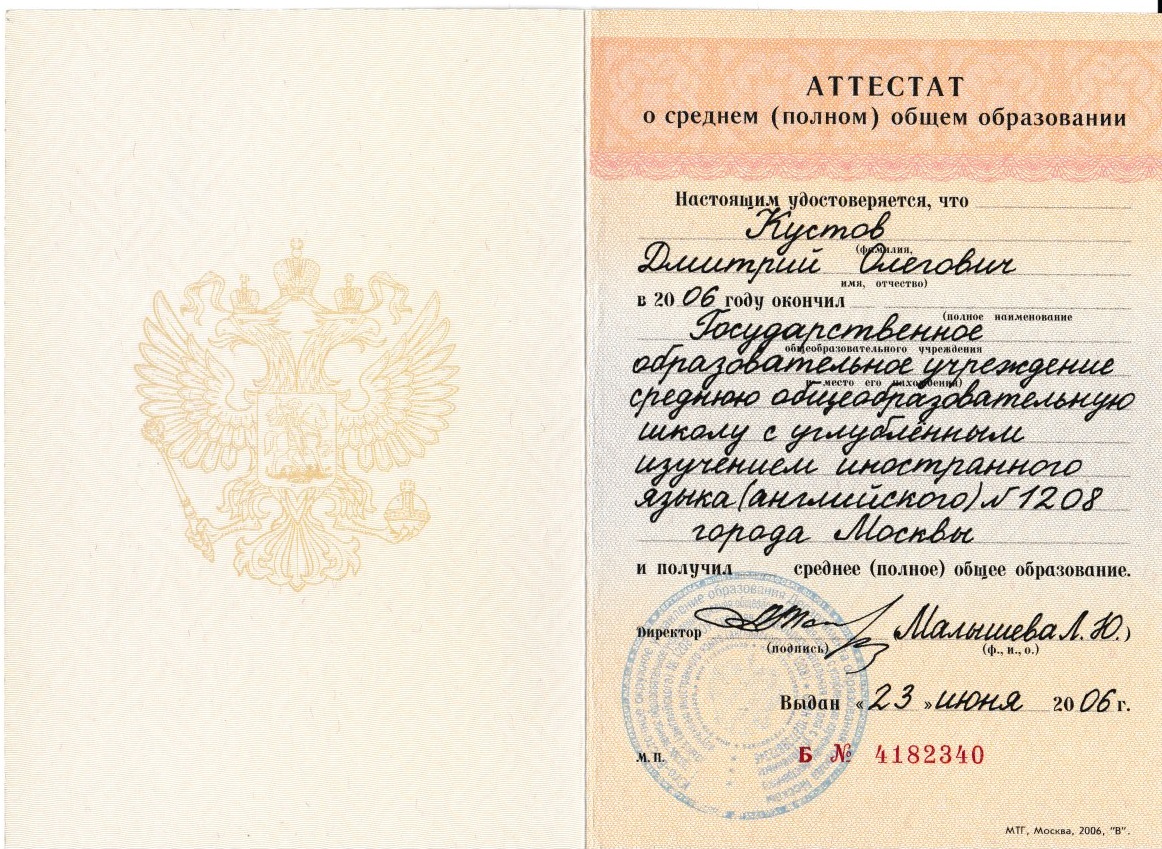 АТТЕСТАТ
о среднем (полном) общем образовании
Настоящим удостоверяется, что
Кустов
(фамилия,
Дмитрий Олегович
имя, отчество)
в 20 06 году окончил
(полное наименование
Государственное
общеобразовательного учреждения
образовательное учреждение
и место его нахождения)
среднюю общеобразовательную
школу с углублённым
изучением иностранного
языка (английского) № 1208
города Москвы
и получил среднее (полное) общее образование.
Директор Малышева Л. Ю.)
(подпись) (ф., и., о.)
Выдан « 23 » июня 20 06 г.
М. П. Б № 4182340
МТГ, Москва, 2006, "В".